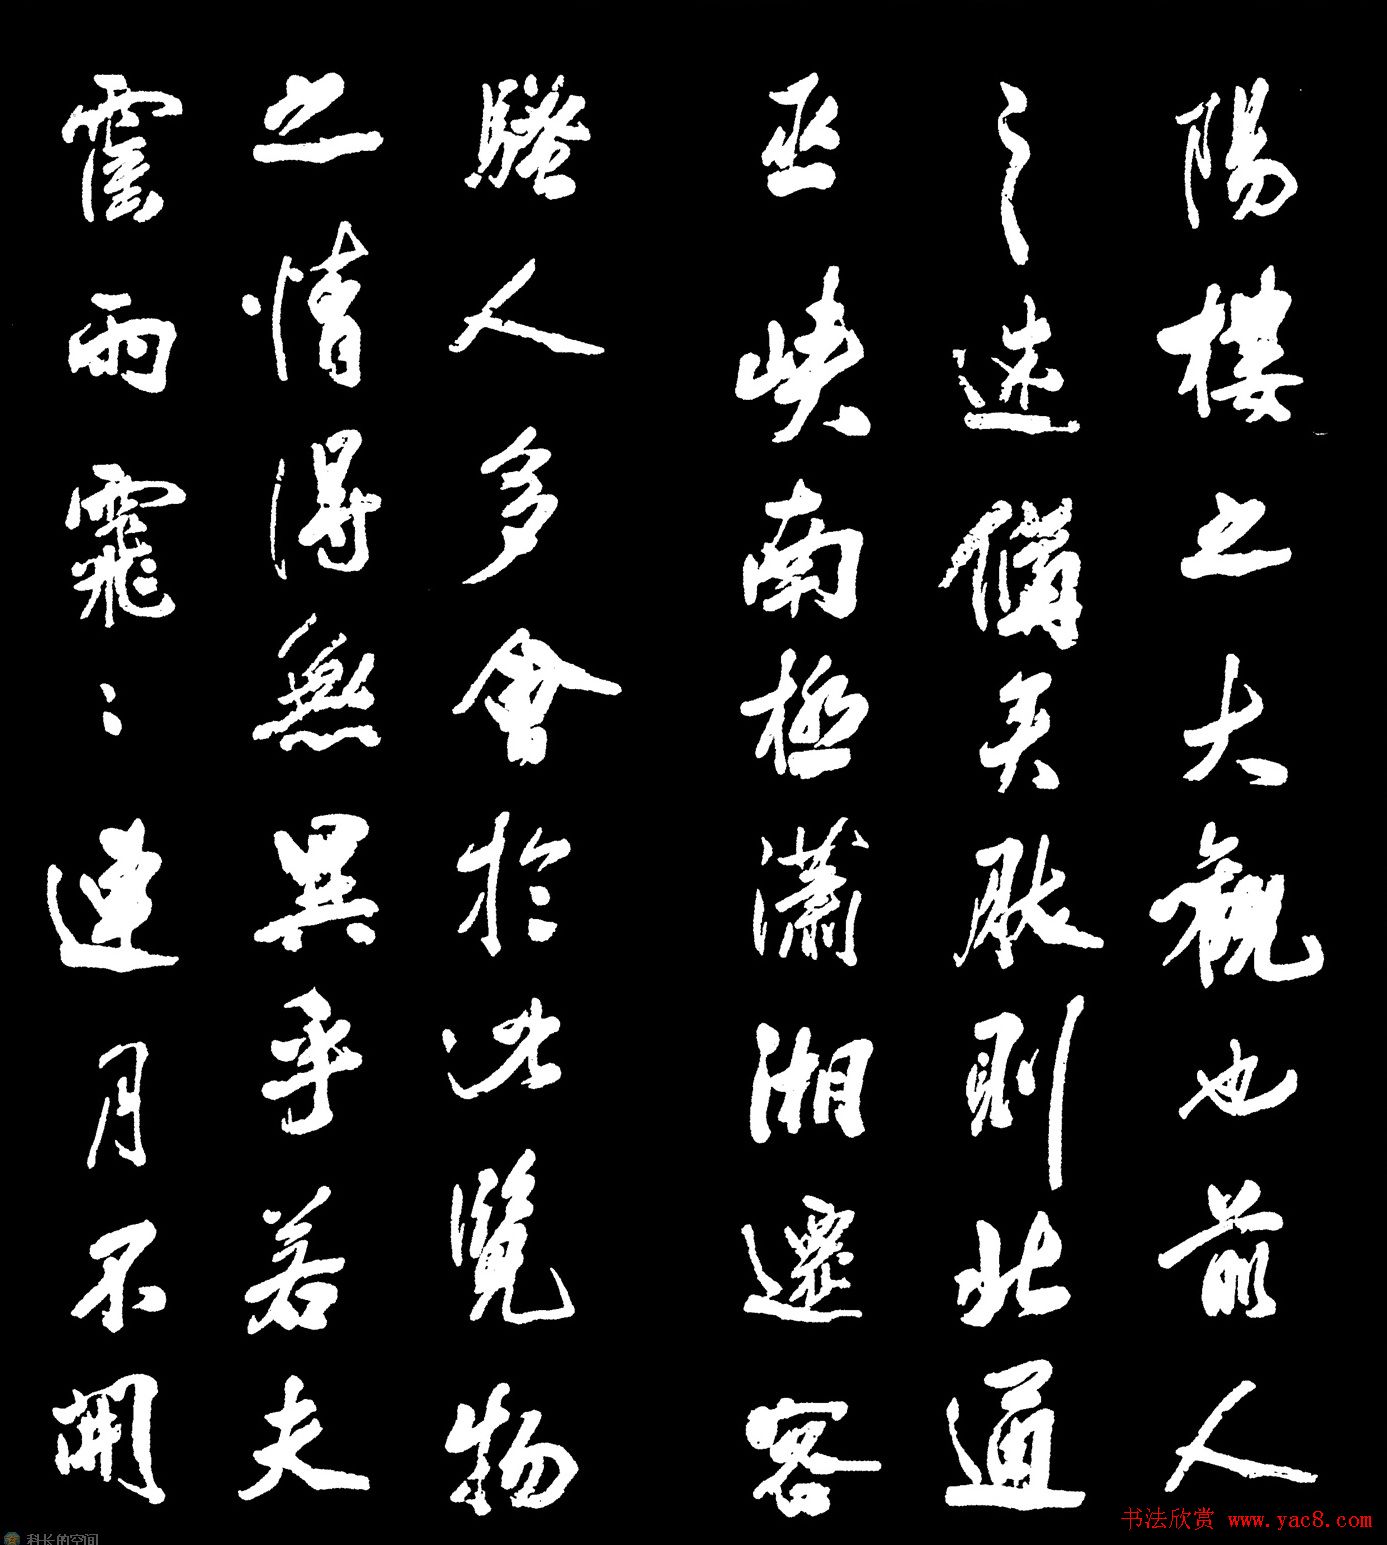 陽樓之大觀也前人
之述備矣然則北通
巫峽南極瀟湘遷客
騷人多會於此覽物
之情得無異乎若夫
霪雨霏〻連月不開
书法欣赏 www.yac8.com
科长的空间